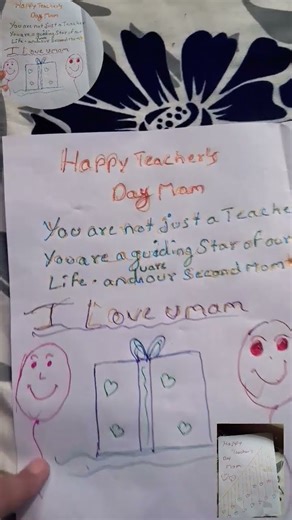 Happy Teacher's
Day Mam
You are not just a Teache
You are a guiding Star of our
Life. and
u are
our Second Mom
I Love u mam
Happy Teacher's
Day Mam
You are not just a Teacher
You are a guiding Star of our
Life. and our Second Mom
I Love u mam
Happy
Teacher's
Day
Mam